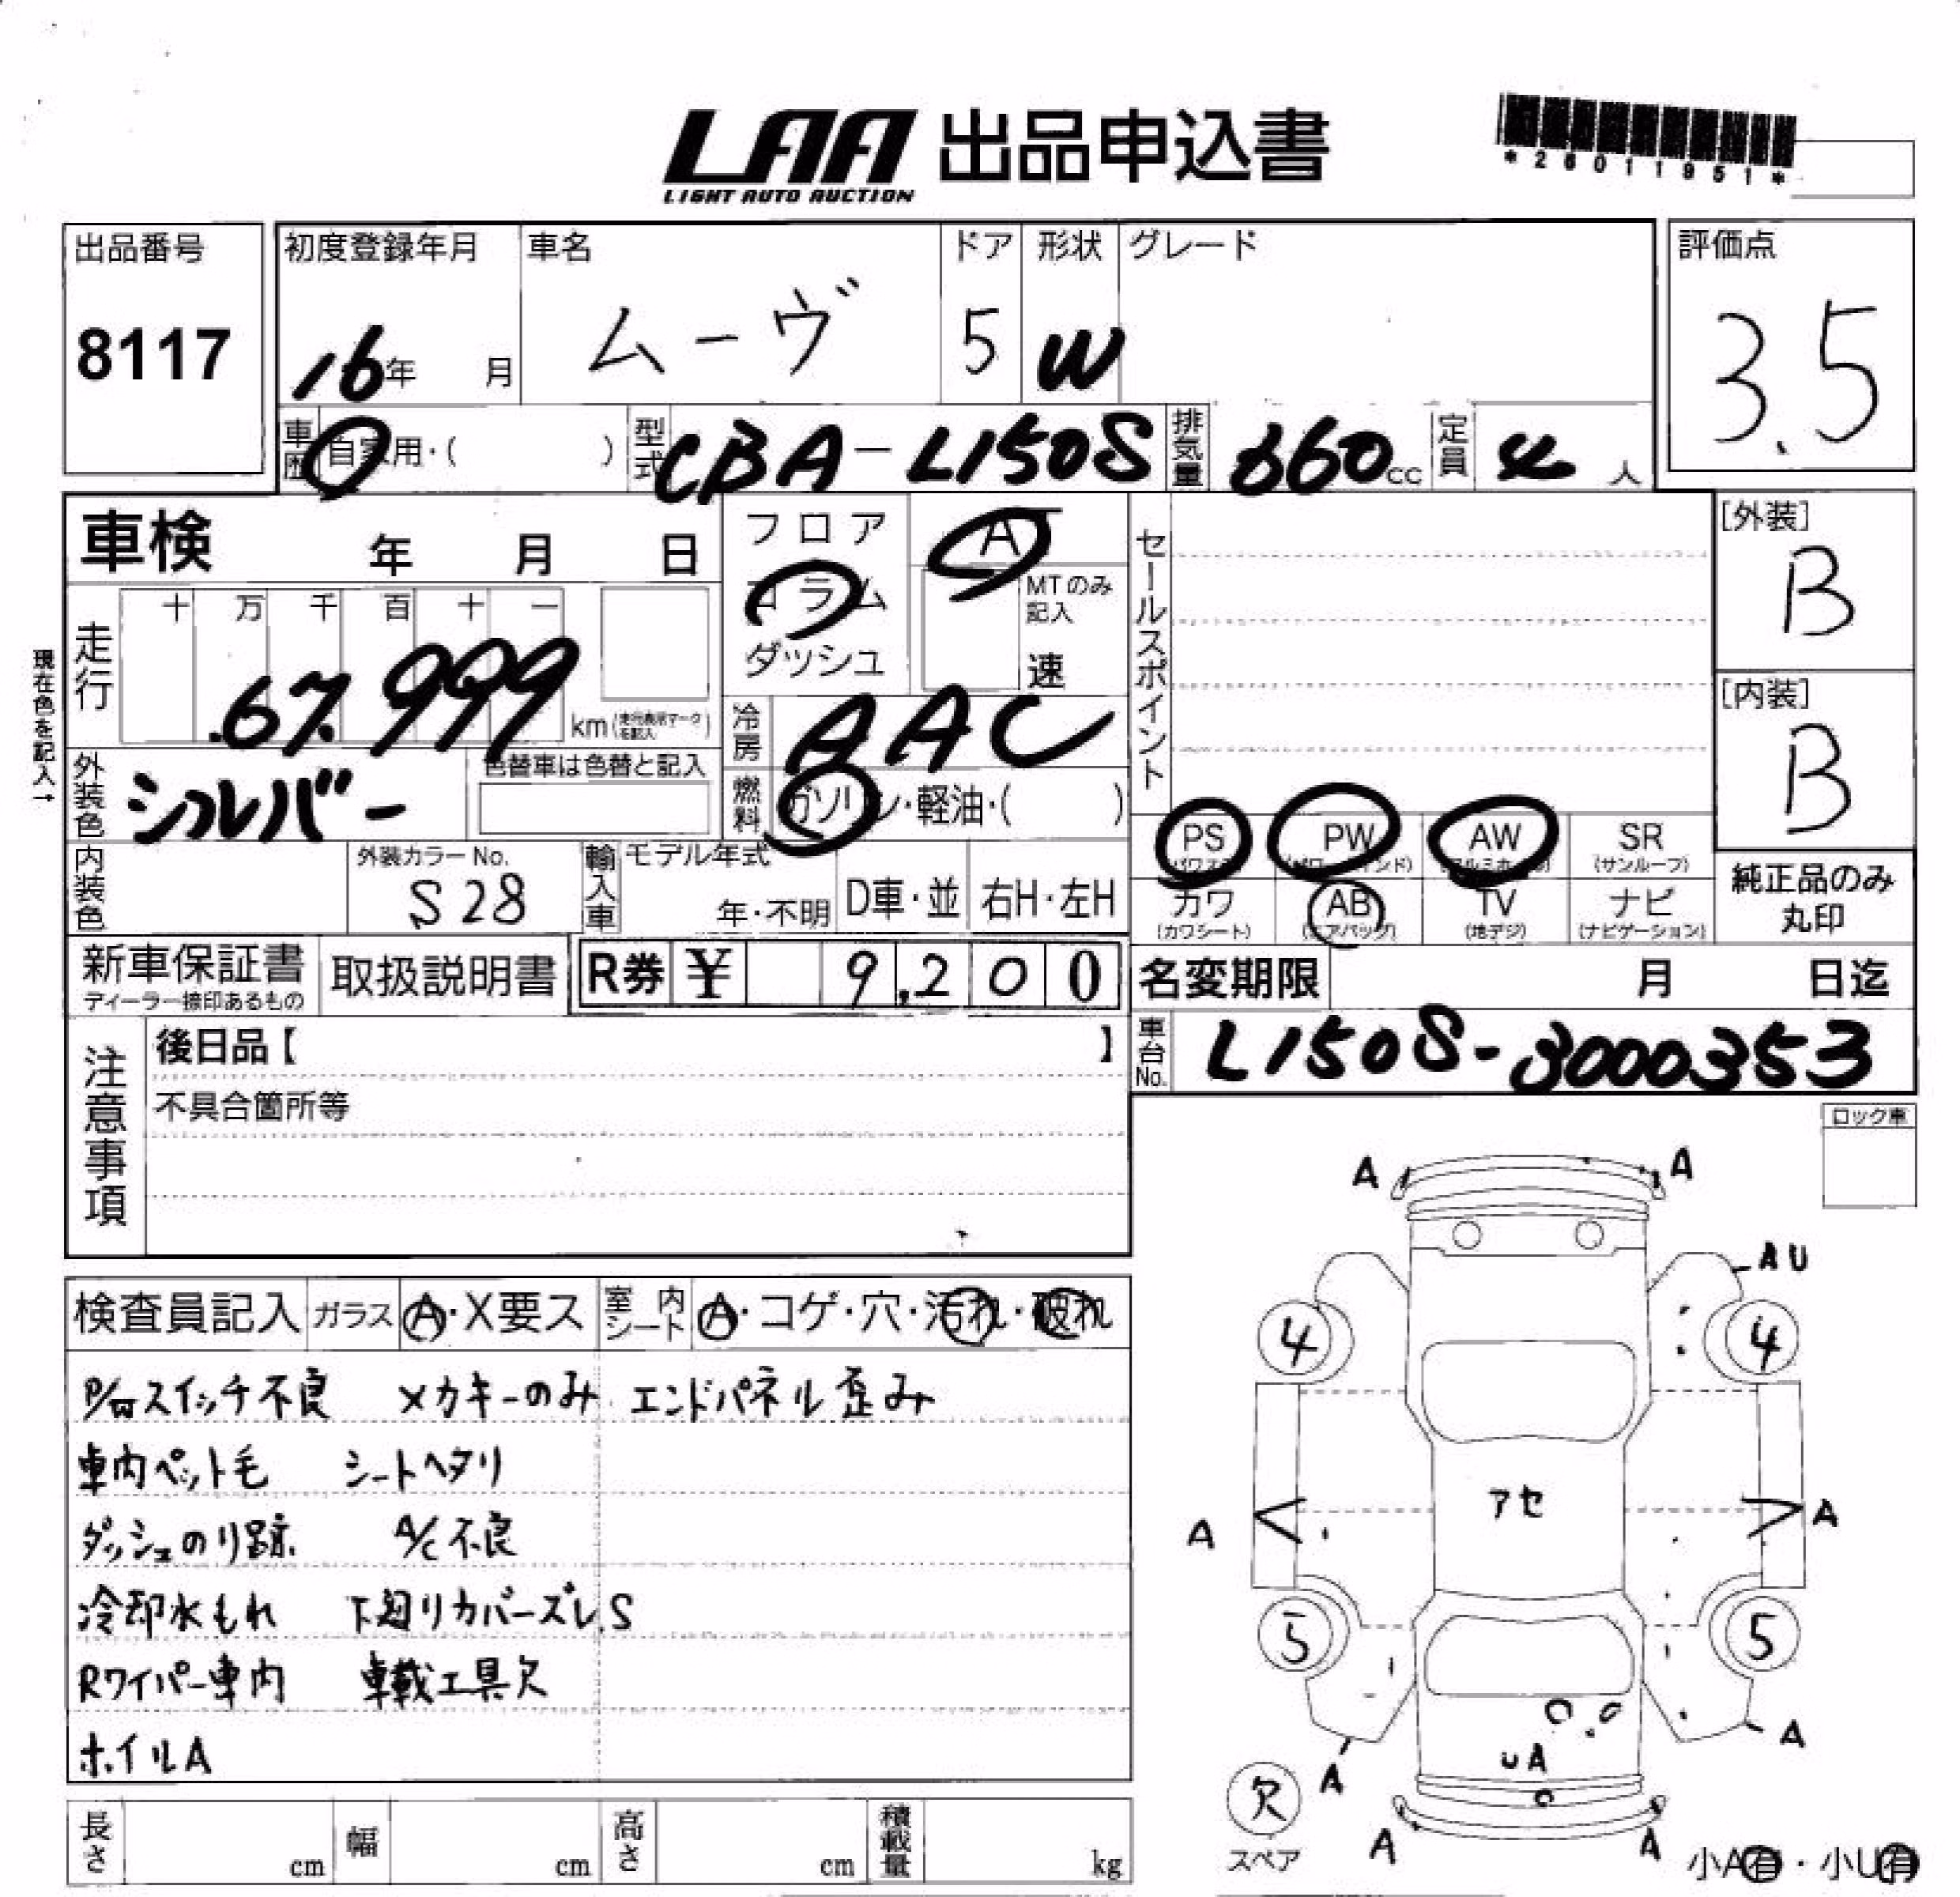 LAA 出品申込書
LIGHT AUTO AUCTION
*26011951*
出品番号 初度登録年月 車名 ドア 形状 グレード 評価点
8117 16年 月 ムーヴ 5 W 3.5
車歴 自家用・( ) 型式 CBA-L150S 排気量 660cc 定員 4人
車検 年 月 日 フロア AT セールスポイント [外装]
B
コラム MTのみ記入
ダッシュ 速
現在色を記入→
走行 十万千百十一 67,999 km (走行表示マークを記入)
[内装]
B
冷房 AAC
外装色 シルバー 色替車は色替と記入 燃料 ガソリン・軽油・( )
PS (パワステ) PW (パワーウィンド) AW (アルミホイル) SR (サンルーフ)
内装色 外装カラーNo. S28 輸入車 モデル年式 年・不明 D車・並 右H・左H
カワ (カワシート) AB (エアバッグ) TV (地デジ) ナビ (ナビゲーション)
純正品のみ
丸印
新車保証書 ディーラー捺印あるもの 取扱説明書 R券 ¥ 9,200 名変期限 月 日迄
注意事項 後日品【 】 車台No. L150S-3000353
不具合箇所等
ロック車
検査員記入 ガラス A・X要ス 室内シート A・コゲ・穴・汚れ・破れ
P/Wスイッチ不良 メカキーのみ エンドパネル歪み
車内ペット毛 シートヘタリ
ダッシュのり跡 A/C不良
冷却水もれ 下廻りカバーズレ、S
Rワイパー車内 車載工具欠
ホイルA
A A
AU
4 4
アセ
A A
5 5
A A
UA
欠
スペア
A A
小A有・小U有
長さ cm 幅 cm 高さ cm 積載量 kg